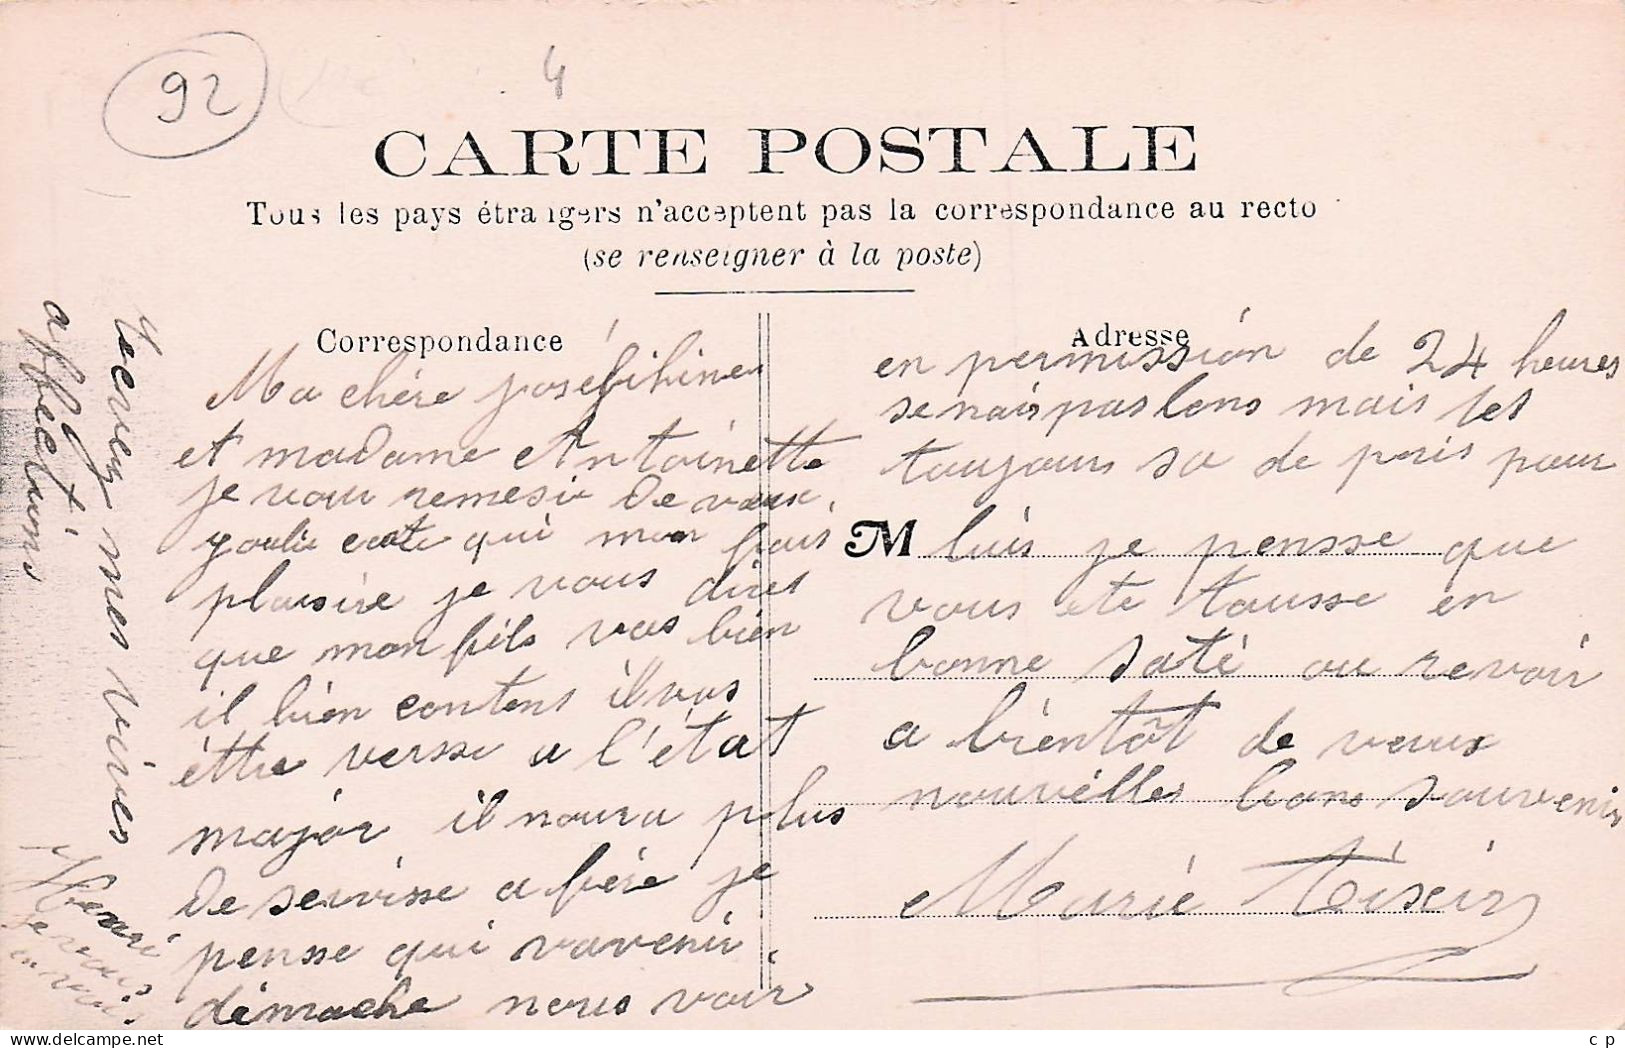 92
4
CARTE POSTALE
Tous les pays étrangers n'acceptent pas la correspondance au recto
(se renseigner à la poste)
Correspondance
Ma chère josefihine
et madame Antoinette
je vous remesie de vaux
youlie carte qui mon fais
plaisire je vous dires
que mon fils vas bien
il bien contens il vas
éttre versse a l'état
major il noura plus
de servisse a fére je
pense qui vavenir
dimache nous voir
Adresse
en permission de 24 heures
se nais pas lons mais set
toujours sa de pris pour
M luis je pensse que
vous ete tousse en
bonne saté au revoir
a bientôt de vaux
nouvélles bons souvenir
Marie Tixeir
recevez mes vives
affections
Henri
je vous
c p